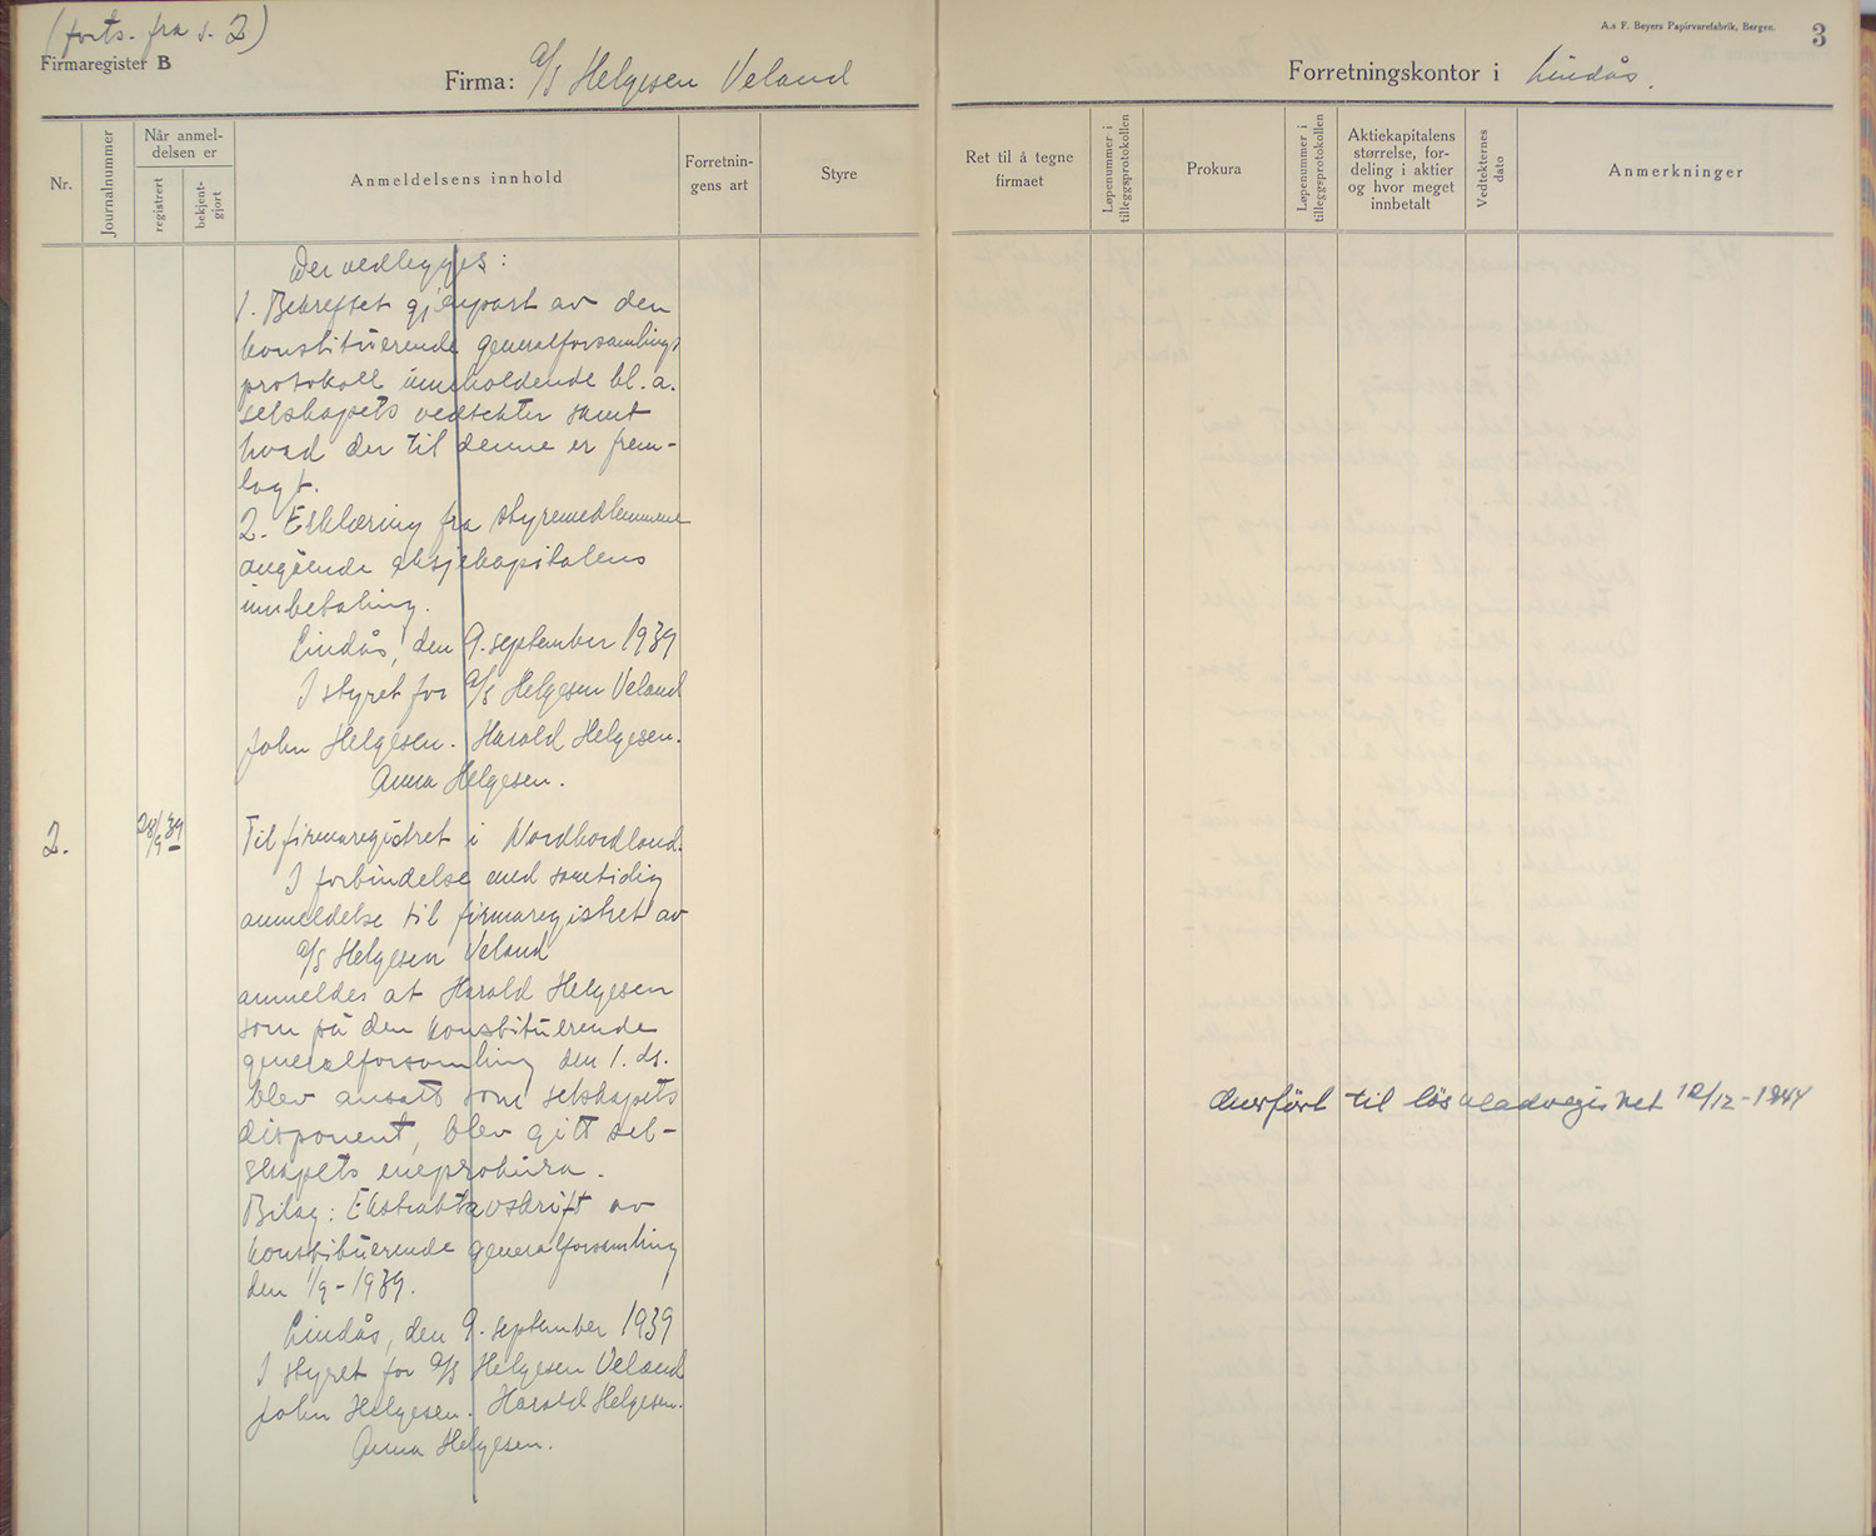 (forts. fra s. 2)
Firmaregister B
Firma: A/S Helgesen Veland
A.s F. Beyers Papirvarefabrik, Bergen.
3
Forretningskontor i Lindås.
Nr.
Journalnummer
Når anmel-
delsen er
registrert
bekjent-
gjort
Anmeldelsens innhold
Forretnin-
gens art
Styre
Ret til å tegne
firmaet
Løpenummer i
tilleggsprotokollen
Prokura
Løpenummer i
tilleggsprotokollen
Aktiekapitalens
størrelse, for-
deling i aktier
og hvor meget
innbetalt
Vedtekternes
dato
Anmerkninger
Der vedlegges:
1. Bekreftet gjenpart av den
konstituerende generalforsamlings
protokoll inneholdende bl. a.
selskapets vedtekter samt
hvad der til denne er frem-
lagt.
2. Erklæring fra styremedlemmene
angående aksjekapitalens
innbetaling.
Lindås, den 9. september 1939
I styret for A/S Helgesen Veland
John Helgesen. Harald Helgesen.
Anna Helgesen.
2.
28/9 39
Til firmaregistret i Nordhordland.
I forbindelse med samtidig
anmeldelse til firmaregistret av
A/S Helgesen Veland
anmeldes at Harald Helgesen
som på den konstituerende
generalforsamling den 1. ds.
blev ansatt som selskapets
disponent, blev gitt sel-
skapets eneprokura.
Bilag: Ekstraktavskrift av
konstituerende generalforsamling
den 1/9-1939.
Lindås, den 9. september 1939
I styret for A/S Helgesen Veland
John Helgesen. Harald Helgesen.
Anna Helgesen.
Overført til løsbladregistret 12/12-1944